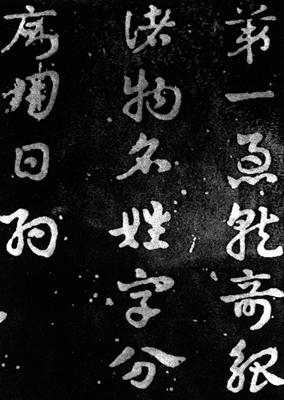 第一急就奇觚
諸物名姓字分
廁用日約